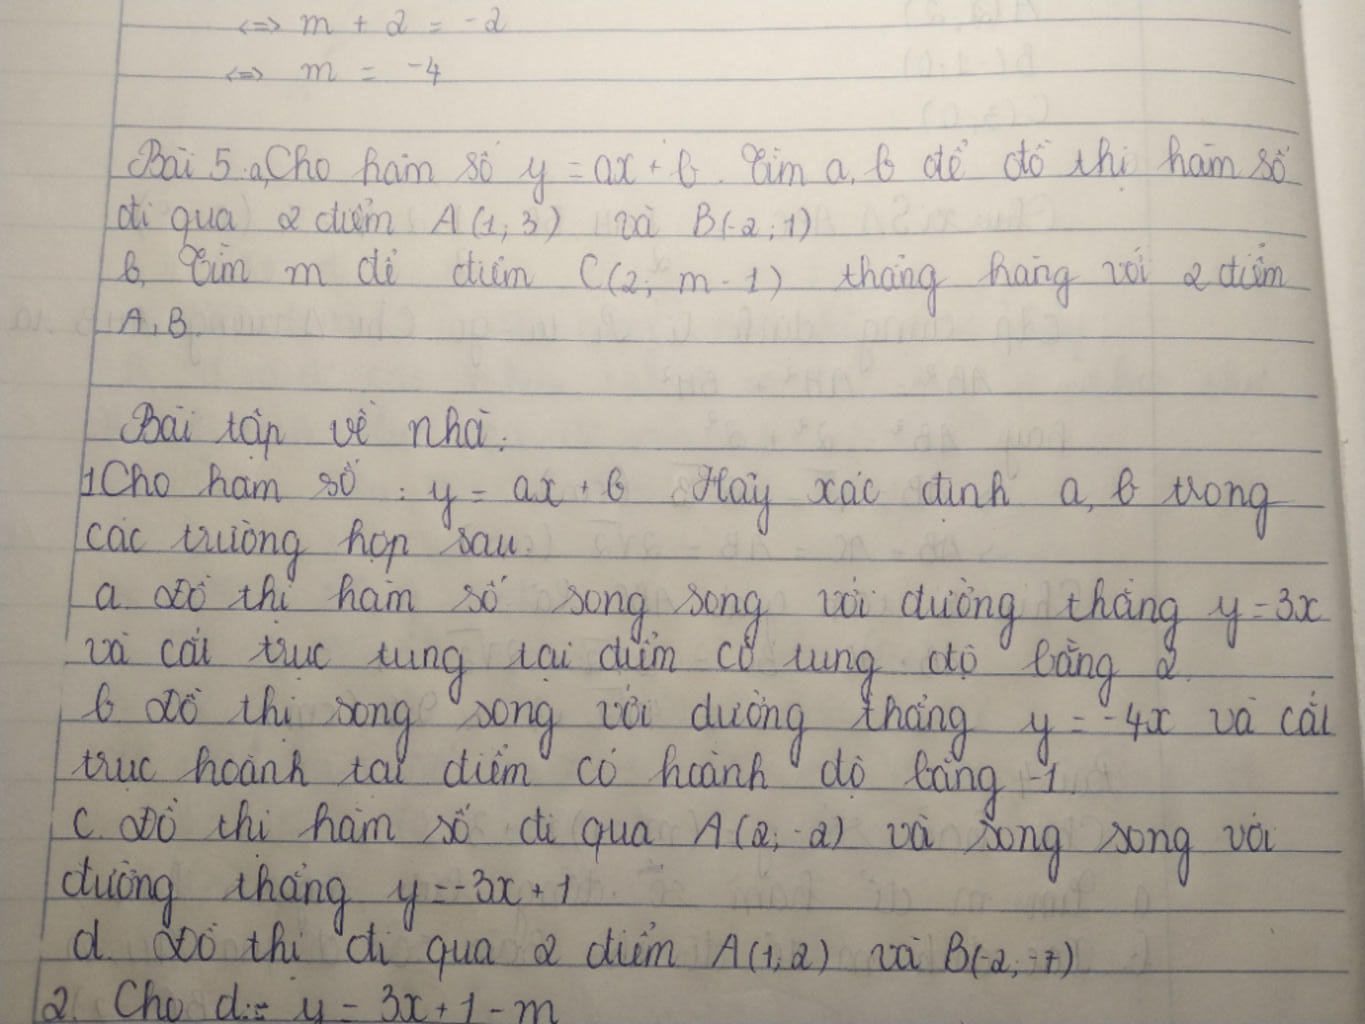 <=> m + 2 = -2
<=> m = -4
Bài 5. a, Cho hàm số y = ax + b. Tìm a, b để đồ thị hàm số
đi qua 2 điểm A(1; 3) và B(-2; 1)
b, Tìm m để điểm C(2; m - 1) thẳng hàng với 2 điểm
A, B.
Bài tập về nhà.
1 Cho hàm số : y = ax + b. Hãy xác định a, b trong
các trường hợp sau.
a. Đồ thị hàm số song song với đường thẳng y = 3x
và cắt trục tung tại điểm có tung độ bằng 2.
b. Đồ thị song song với đường thẳng y = -4x và cắt
trục hoành tại điểm có hoành độ bằng -1.
c. Đồ thị hàm số đi qua A(2; -2) và song song với
đường thẳng y = -3x + 1
d. Đồ thị đi qua 2 điểm A(1; 2) và B(-2; -7)
2. Cho d: y = 3x + 1 - m